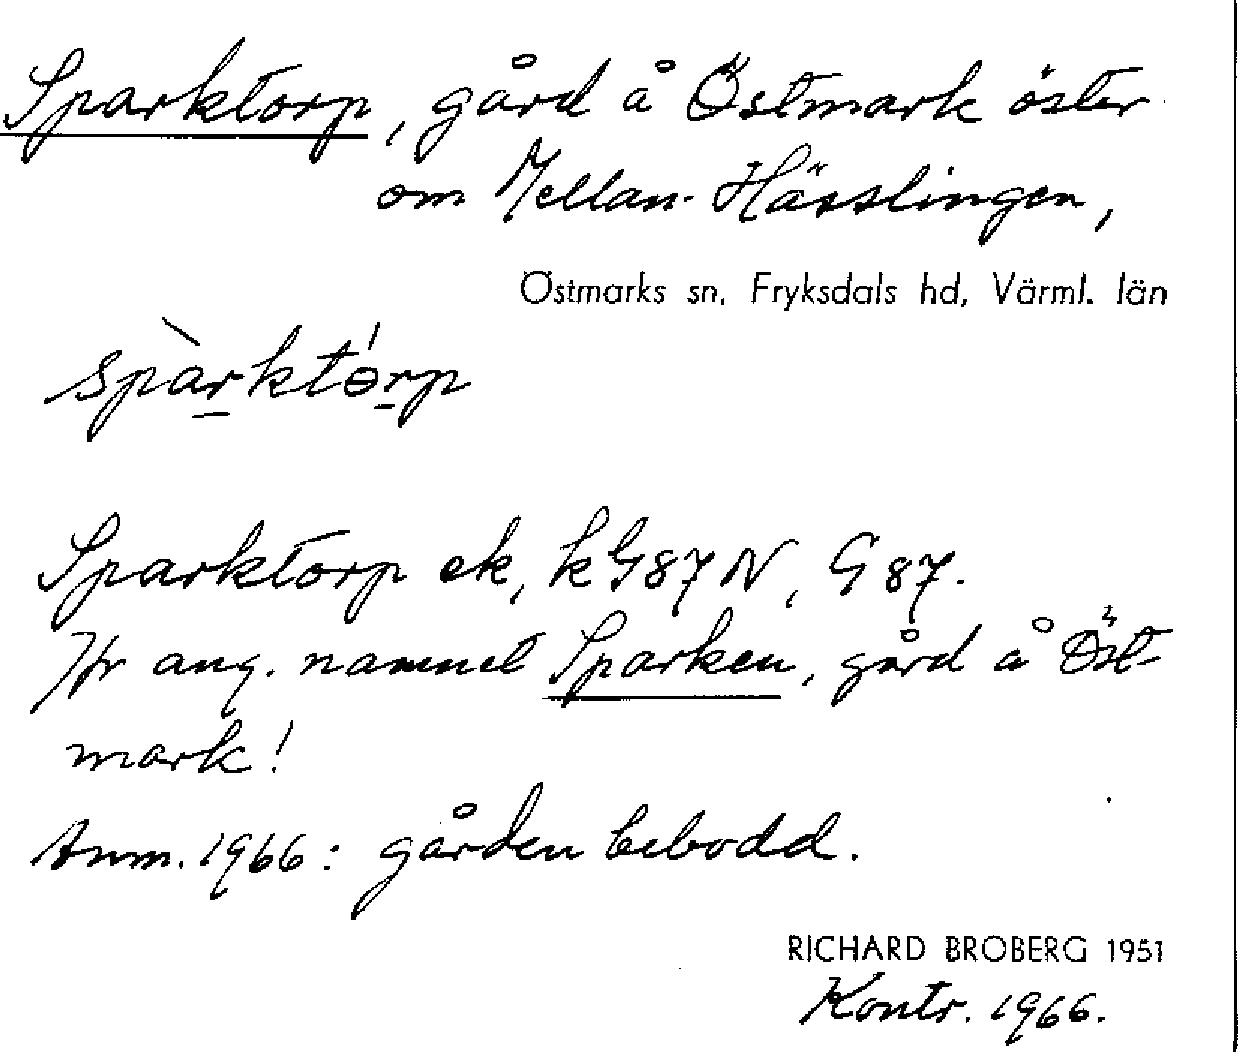 Sparktorp, gård å Östmark öster
om Mellan-Hässlingen,
Östmarks sn, Fryksdals hd, Värml. län
spàrktɵ́rp
Sparktorp ek, kG87N, G87.
Jfr ang. namnet Sparken, gård å Öst-
mark!
Anm. 1966: gården bebodd.
RICHARD BROBERG 1951
Kontr. 1966.